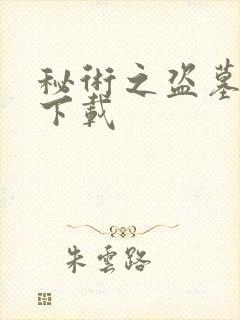 秘術之盜墓
下載
朱雲路